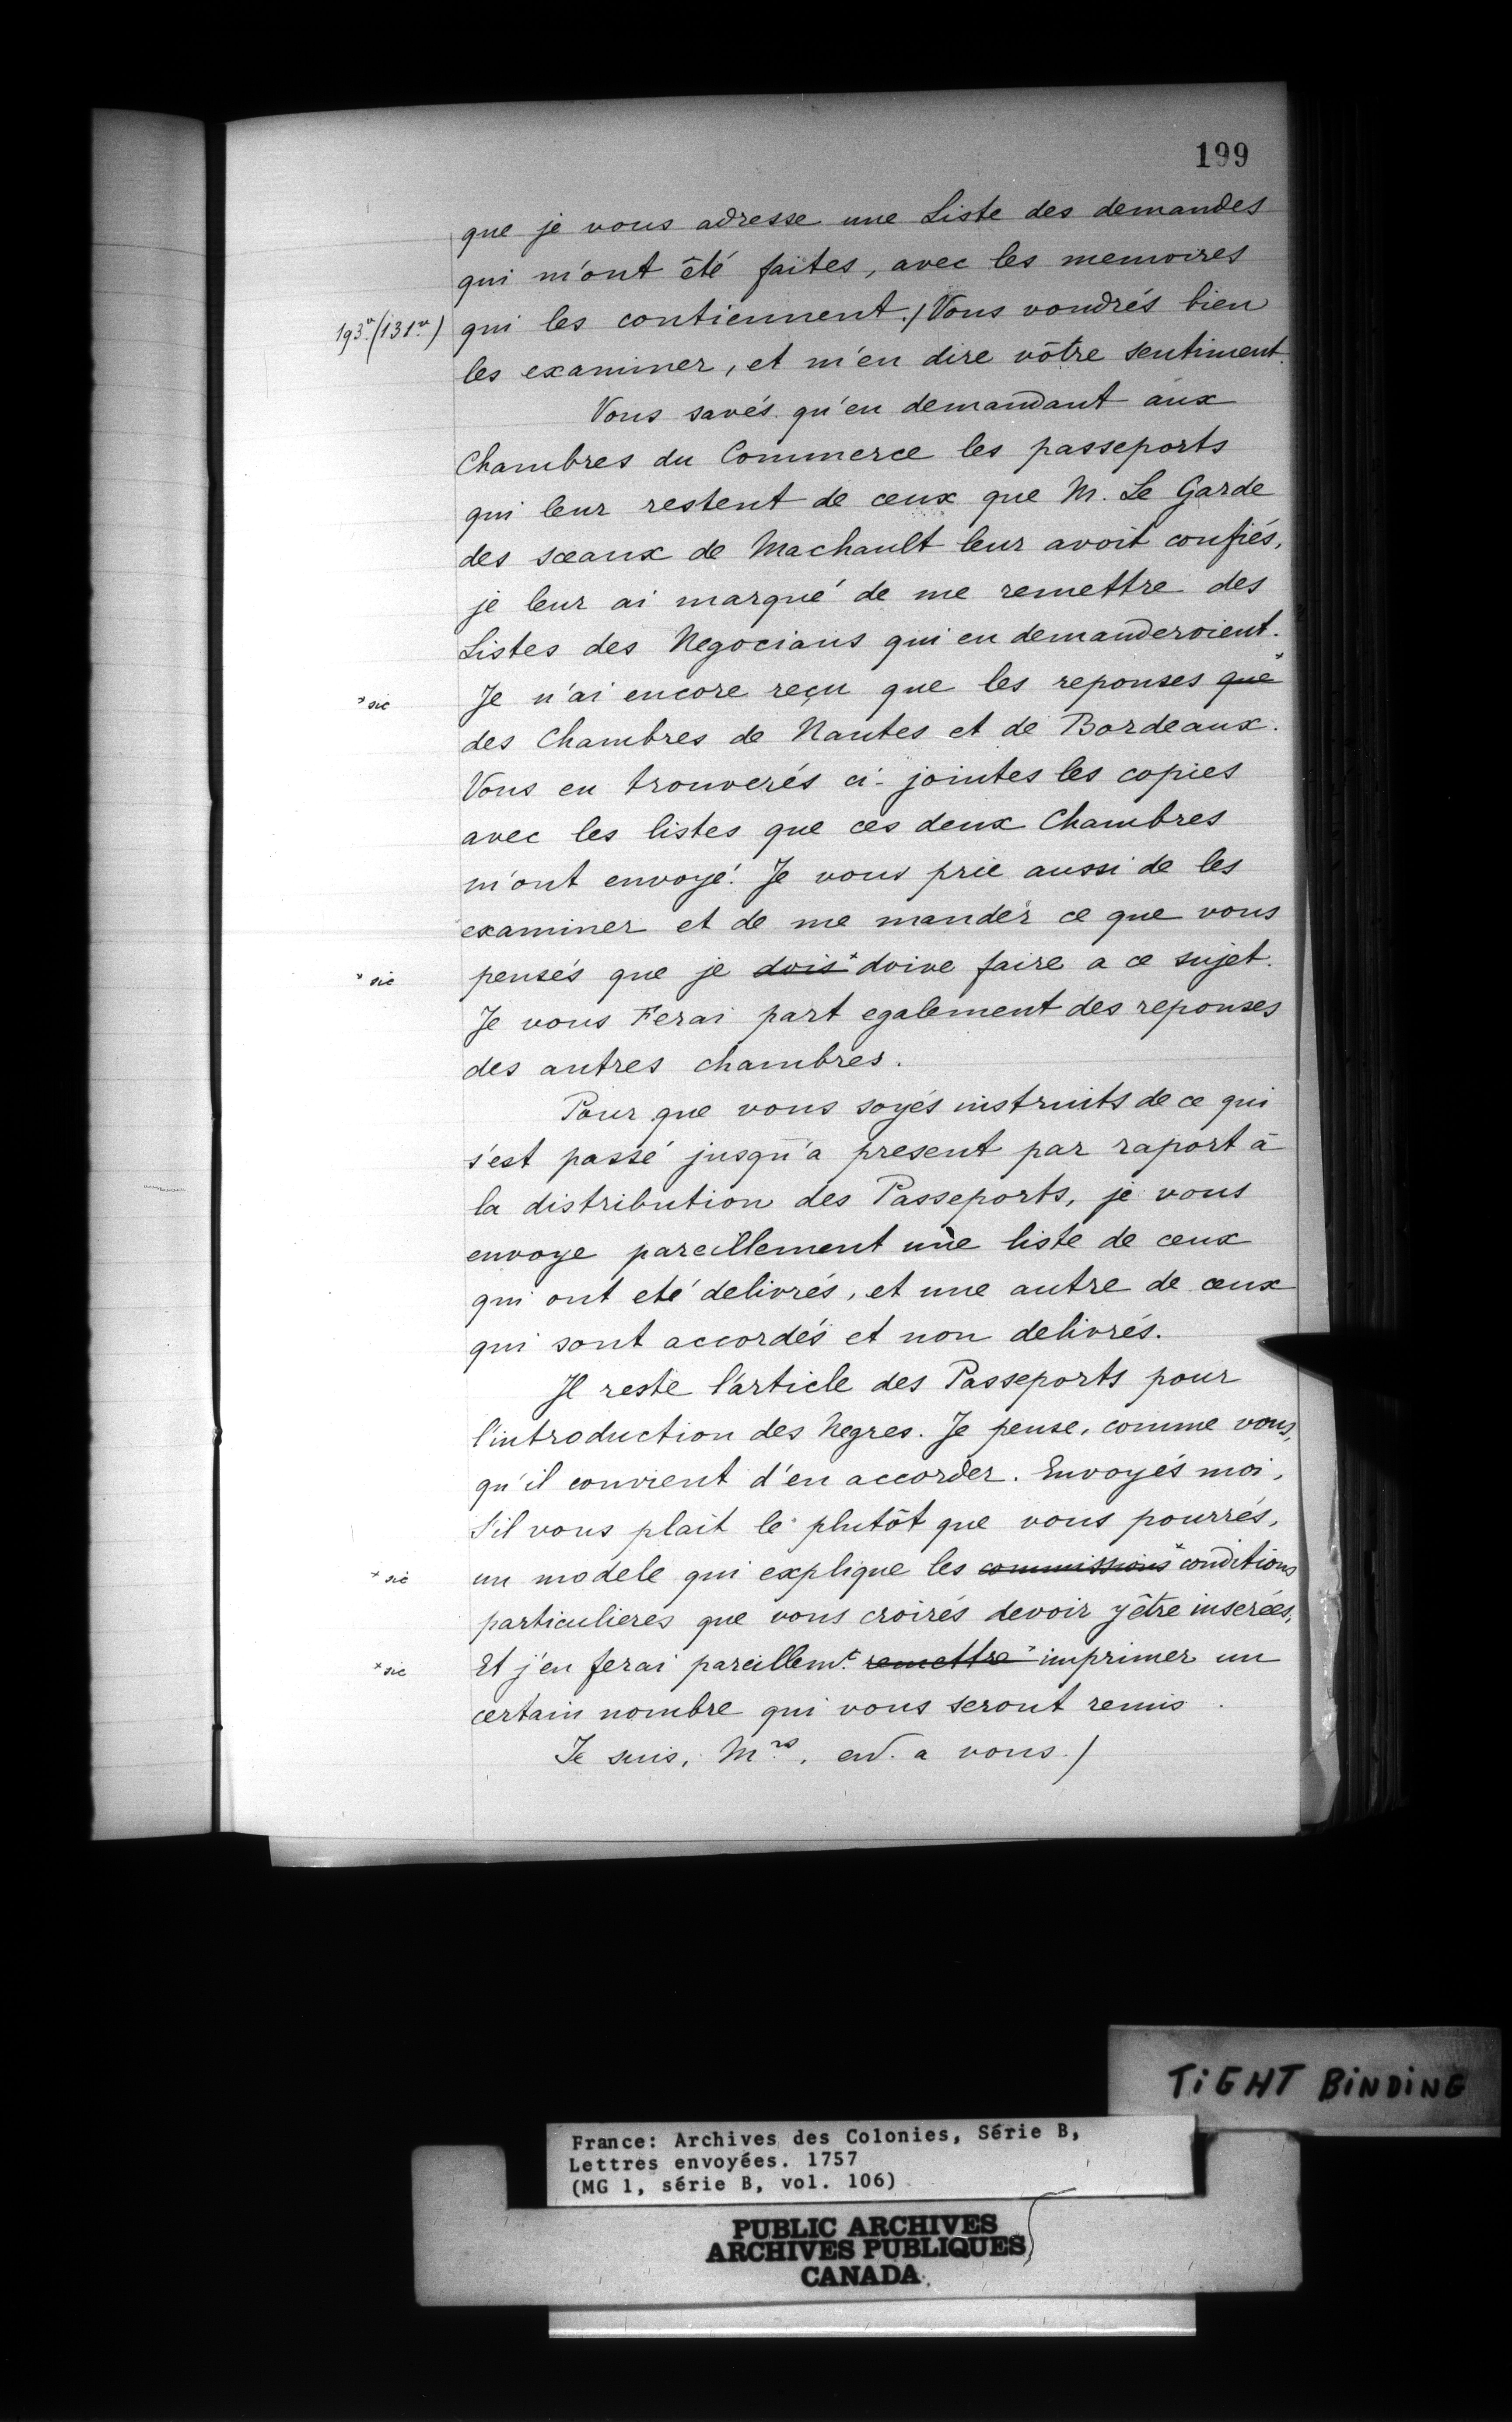 199
que je vous adresse une Liste des demandes
qui m'ont été faites, avec les memoires
193.v (131.v) qui les contiennent./ Vous voudrés bien
les examiner, et m'en dire vôtre sentiment.
Vous savés qu'en demandant aux
Chambres du Commerce les passeports
qui leur restent de ceux que M. Le Garde
des sceaux de Machault leur avoit confiés,
je leur ai marqué de me remettre des
Listes des Negocians qui en demanderoient.
* sic Je n'ai encore reçu que les reponses que*
des Chambres de Nantes et de Bordeaux.
Vous en trouverés ci-jointes les copies
avec les listes que ces deux Chambres
m'ont envoyé. Je vous prie aussi de les
examiner et de me mander ce que vous
* sic pensés que je dois* doive faire a ce sujet.
Je vous Ferai part egalement des reponses
des autres chambres.
Pour que vous soyés instruits de ce qui
s'est passé jusqu'a present par raport à
la distribution des Passeports, je vous
envoye pareillement une liste de ceux
qui ont eté delivrés, et une autre de ceux
qui sont accordés et non delivrés.
Il reste l'article des Passeports pour
l'introduction des Negres. Je pense, comme vous,
qu'il convient d'en accorder. Envoyés moi,
S'il vous plait le plutôt que vous pourrés,
* sic un modele qui explique les commissions* conditions
particulieres que vous croirés devoir y être inserées,
* sic Et j'en ferai pareillem.t remettre* imprimer un
certain nombre qui vous seront remis.
Je suis, M.rs, en. a vous./
TIGHT BINDING
France: Archives des Colonies, Série B,
Lettres envoyées. 1757
(MG 1, série B, vol. 106)
PUBLIC ARCHIVES
ARCHIVES PUBLIQUES
CANADA